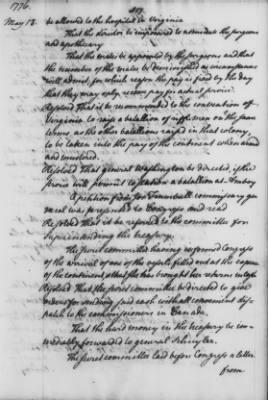 1776.
417
May 13.
be allowed to the hospital in Virginia
That the director be impowered to nominate the surgeons
and apothecary
That the mates be approved by the surgeons and that
the number of the mates be
will admit, for which reason the pay is fixed by the day
that they may only receive pay for actual service.
Resolved That it be recommended to the convention of
Virginia to raise a battalion of riflemen on the same
terms as the other battalions raised in that colony,
to be taken into the pay of the continent when armed
and mustered.
Resolved That general Washington be directed, if the
service will permit to station a battalion at Amboy
A petition from Jos Trumbull commissary ge-
neral was presented to Congress and read
Resolved that it be referred to the committee for
superintending the treasury.
The secret committee having informed Congress
of the arrival of one of the vessels fitted out at the expence
of the continent & that she has brought her returns in cash
Resolved That the secret committee be directed to give
orders for sending said cash with all convenient dis-
patch to the commissioners in Canada.
That the hard money in the treasury be im-
mediately forwarded to general Schuyler.
The secret committee laid before Congress a letter
from